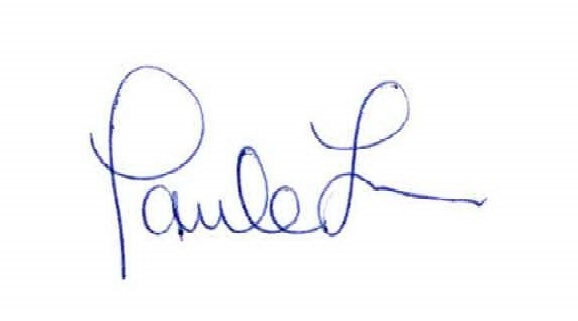 Paule L